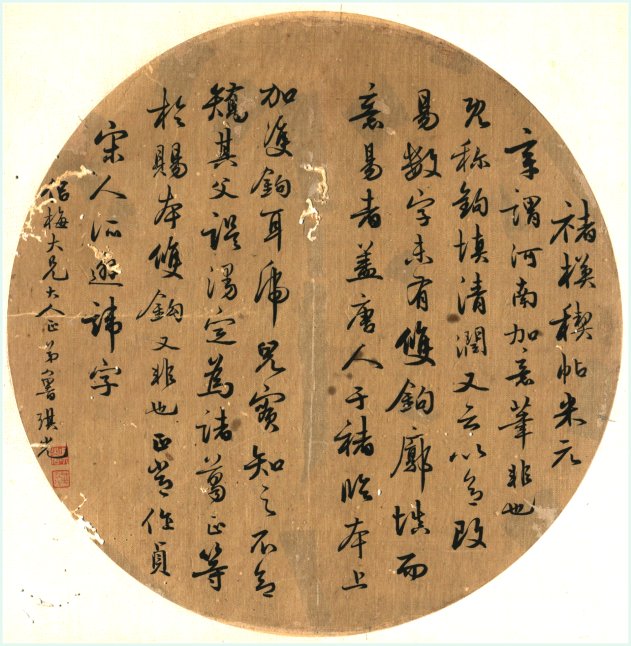 褚模稧帖米元
章謂河南加意筆非也
既称鉤填清潤又云以意改
易數字未有雙鉤廓填而
意易者盖唐人于褚臨本上
加雙鉤耳虎兒實知之不
其父誤謾定為諸葛正等
於賜本雙鉤又非也正當作貞
宋人所避諱字
侶梅大兄大人正弟魯琪光